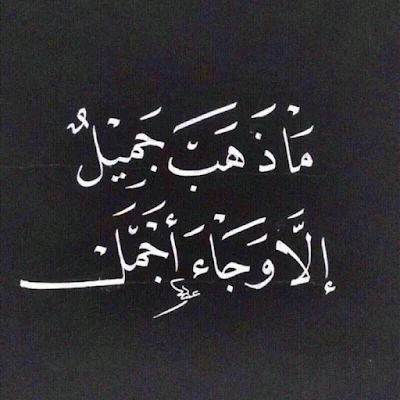 مَاْ ذَهَبَّ جَمِيْلٌ
إلَّا وَجَاْءَ أَجْمَلَّ